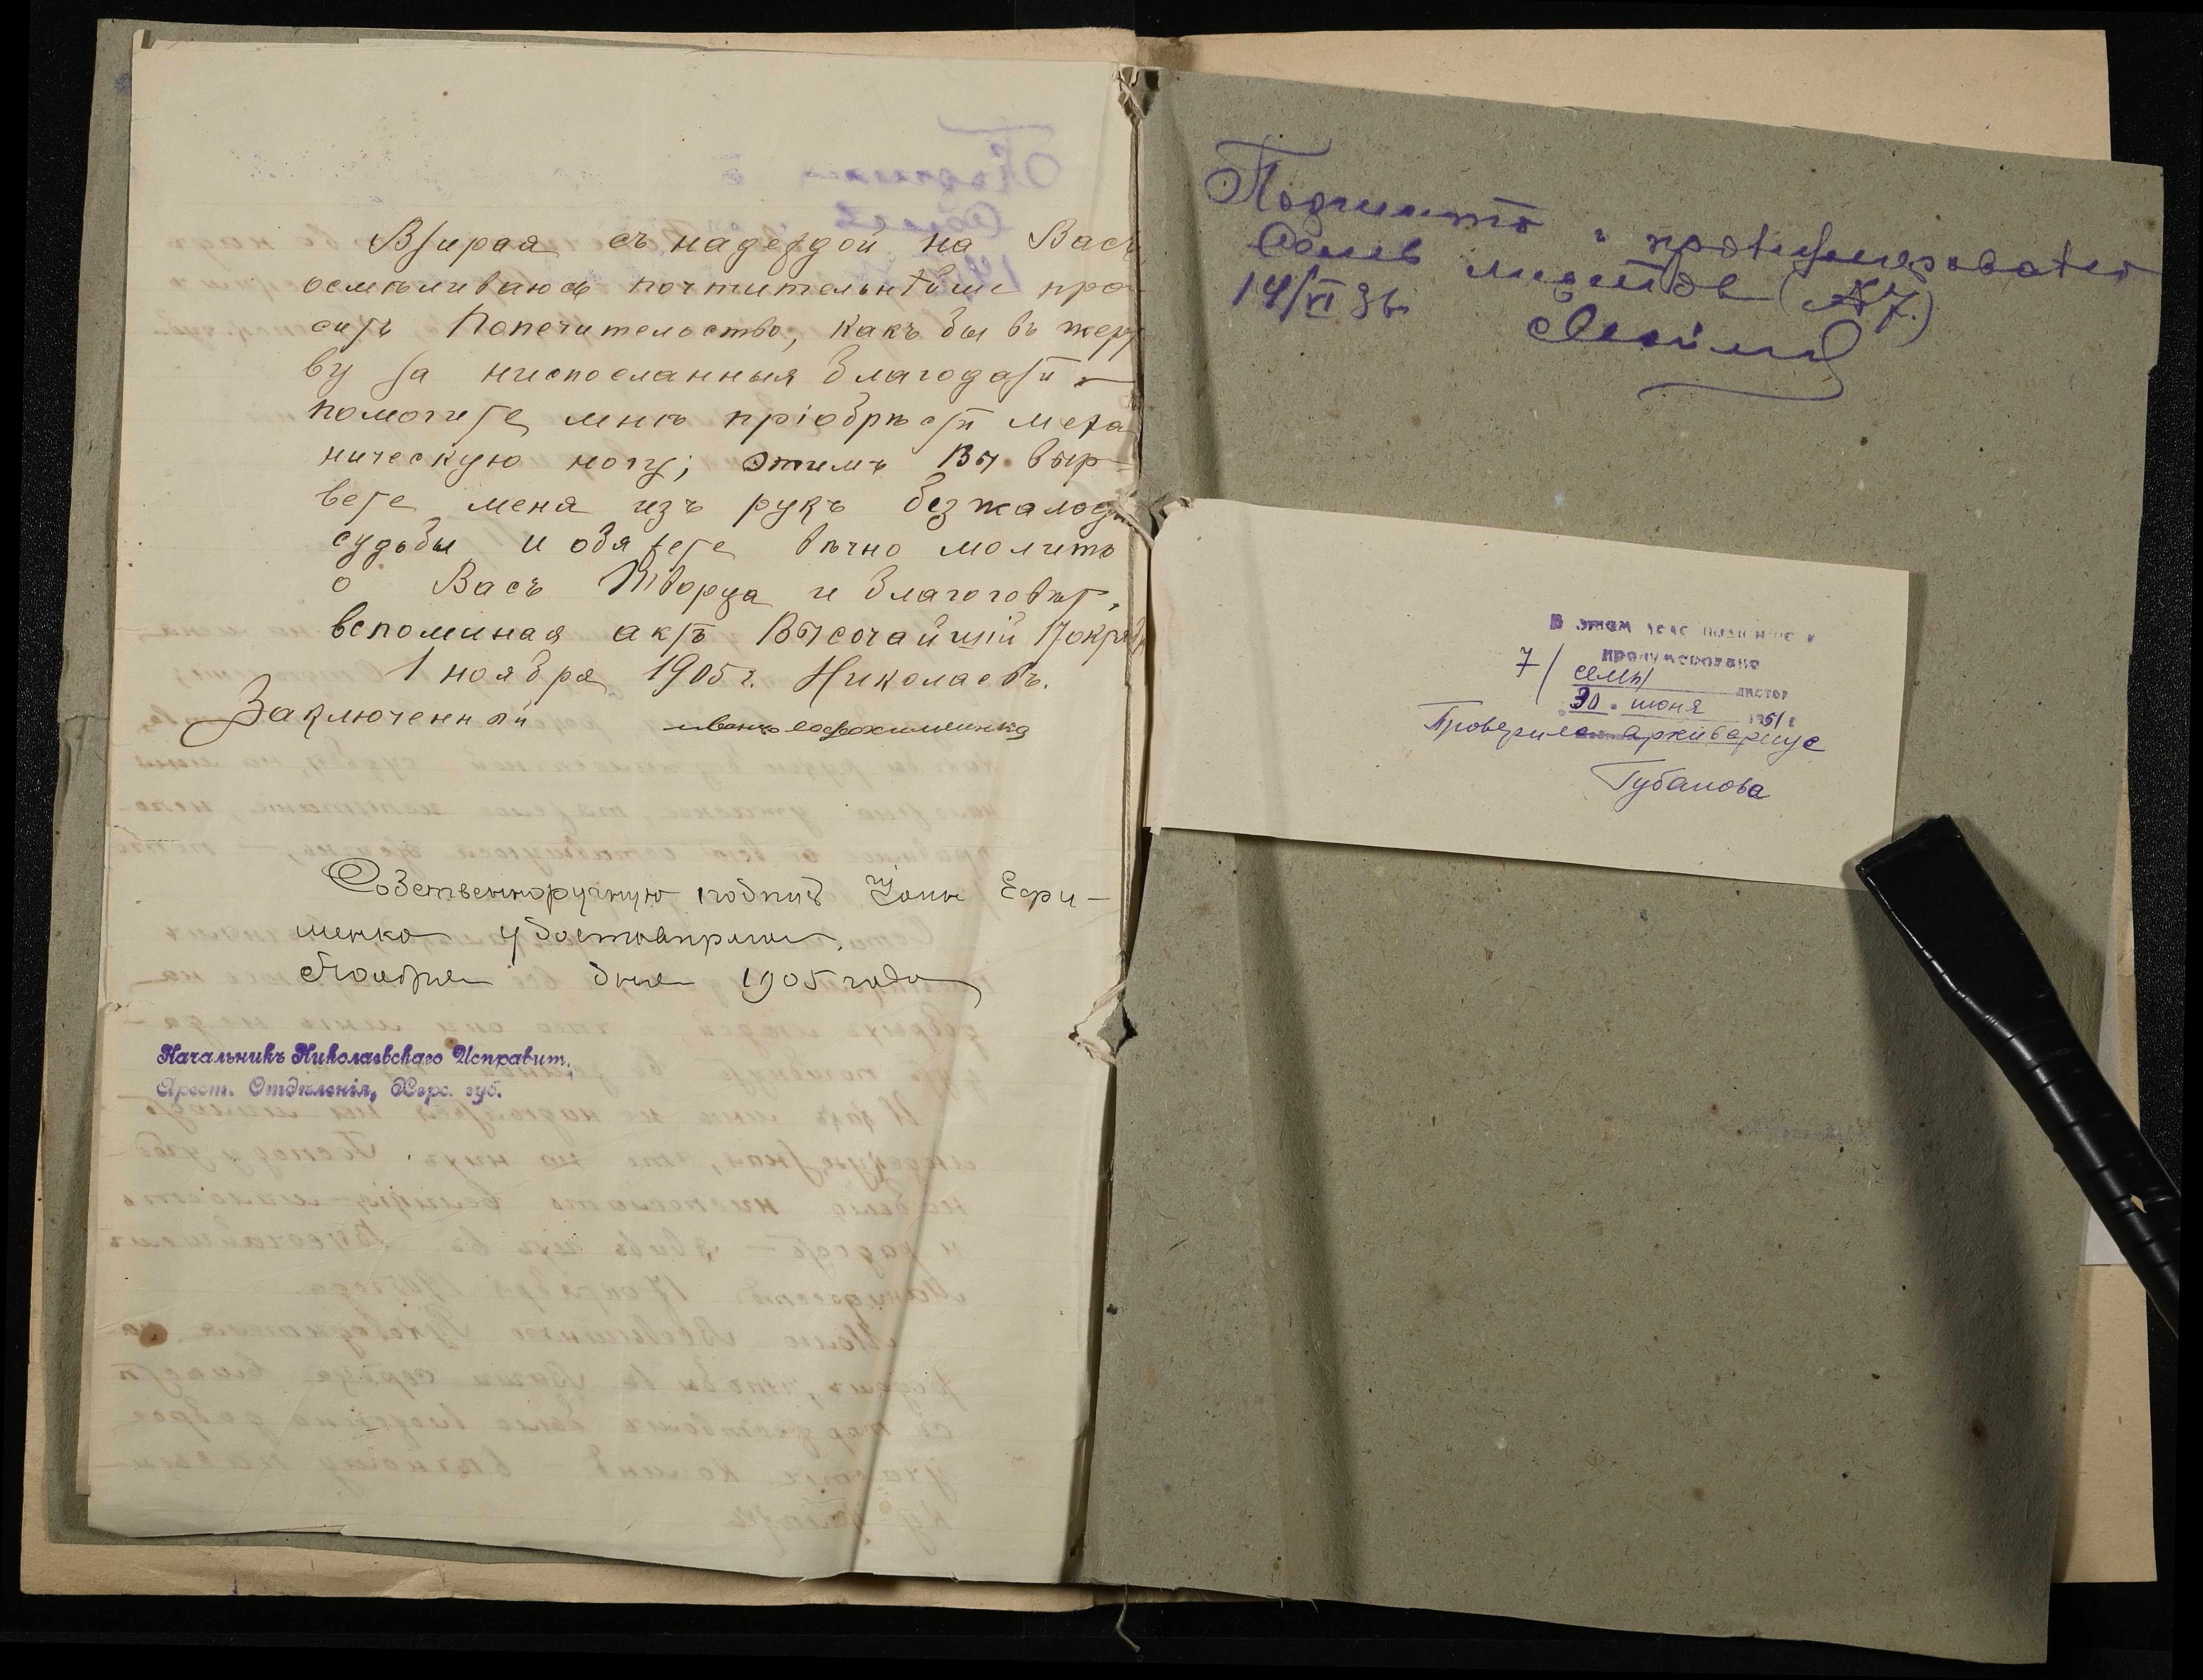 Взирая съ надеждой на Васъ
осмѣливаюсь почтительнѣйше про-
сить Попечительство, какъ бы въ жерт
ву за ниспосланныя благодати –
помогите мнѣ пріобрѣсти меха
ническую ногу; этимъ Вы выр-
вете меня изъ рукъ безжалос
судьбы и обяжете вѣчно молить
о Васъ Творца и благоговѣт.
вспоминая актъ Высочайшій 17 окряб
1 ноября 1905 г. Николаевъ.
Заключенный иванъ
Собственноручную подпись Ефи-
менко удостовѣряю.
Ноября дня 1905 года
Начальникъ Николаевскаго Исправит.
Арест. Отдѣленія, Херс. губ.
Подшито и пронумеровано
Семь листов (№7.)
14/VI 36
В этом деле подшито и
пронумеровано
7/ семь листов
30 июня 1951 г
Проверила архивариус
Губанова